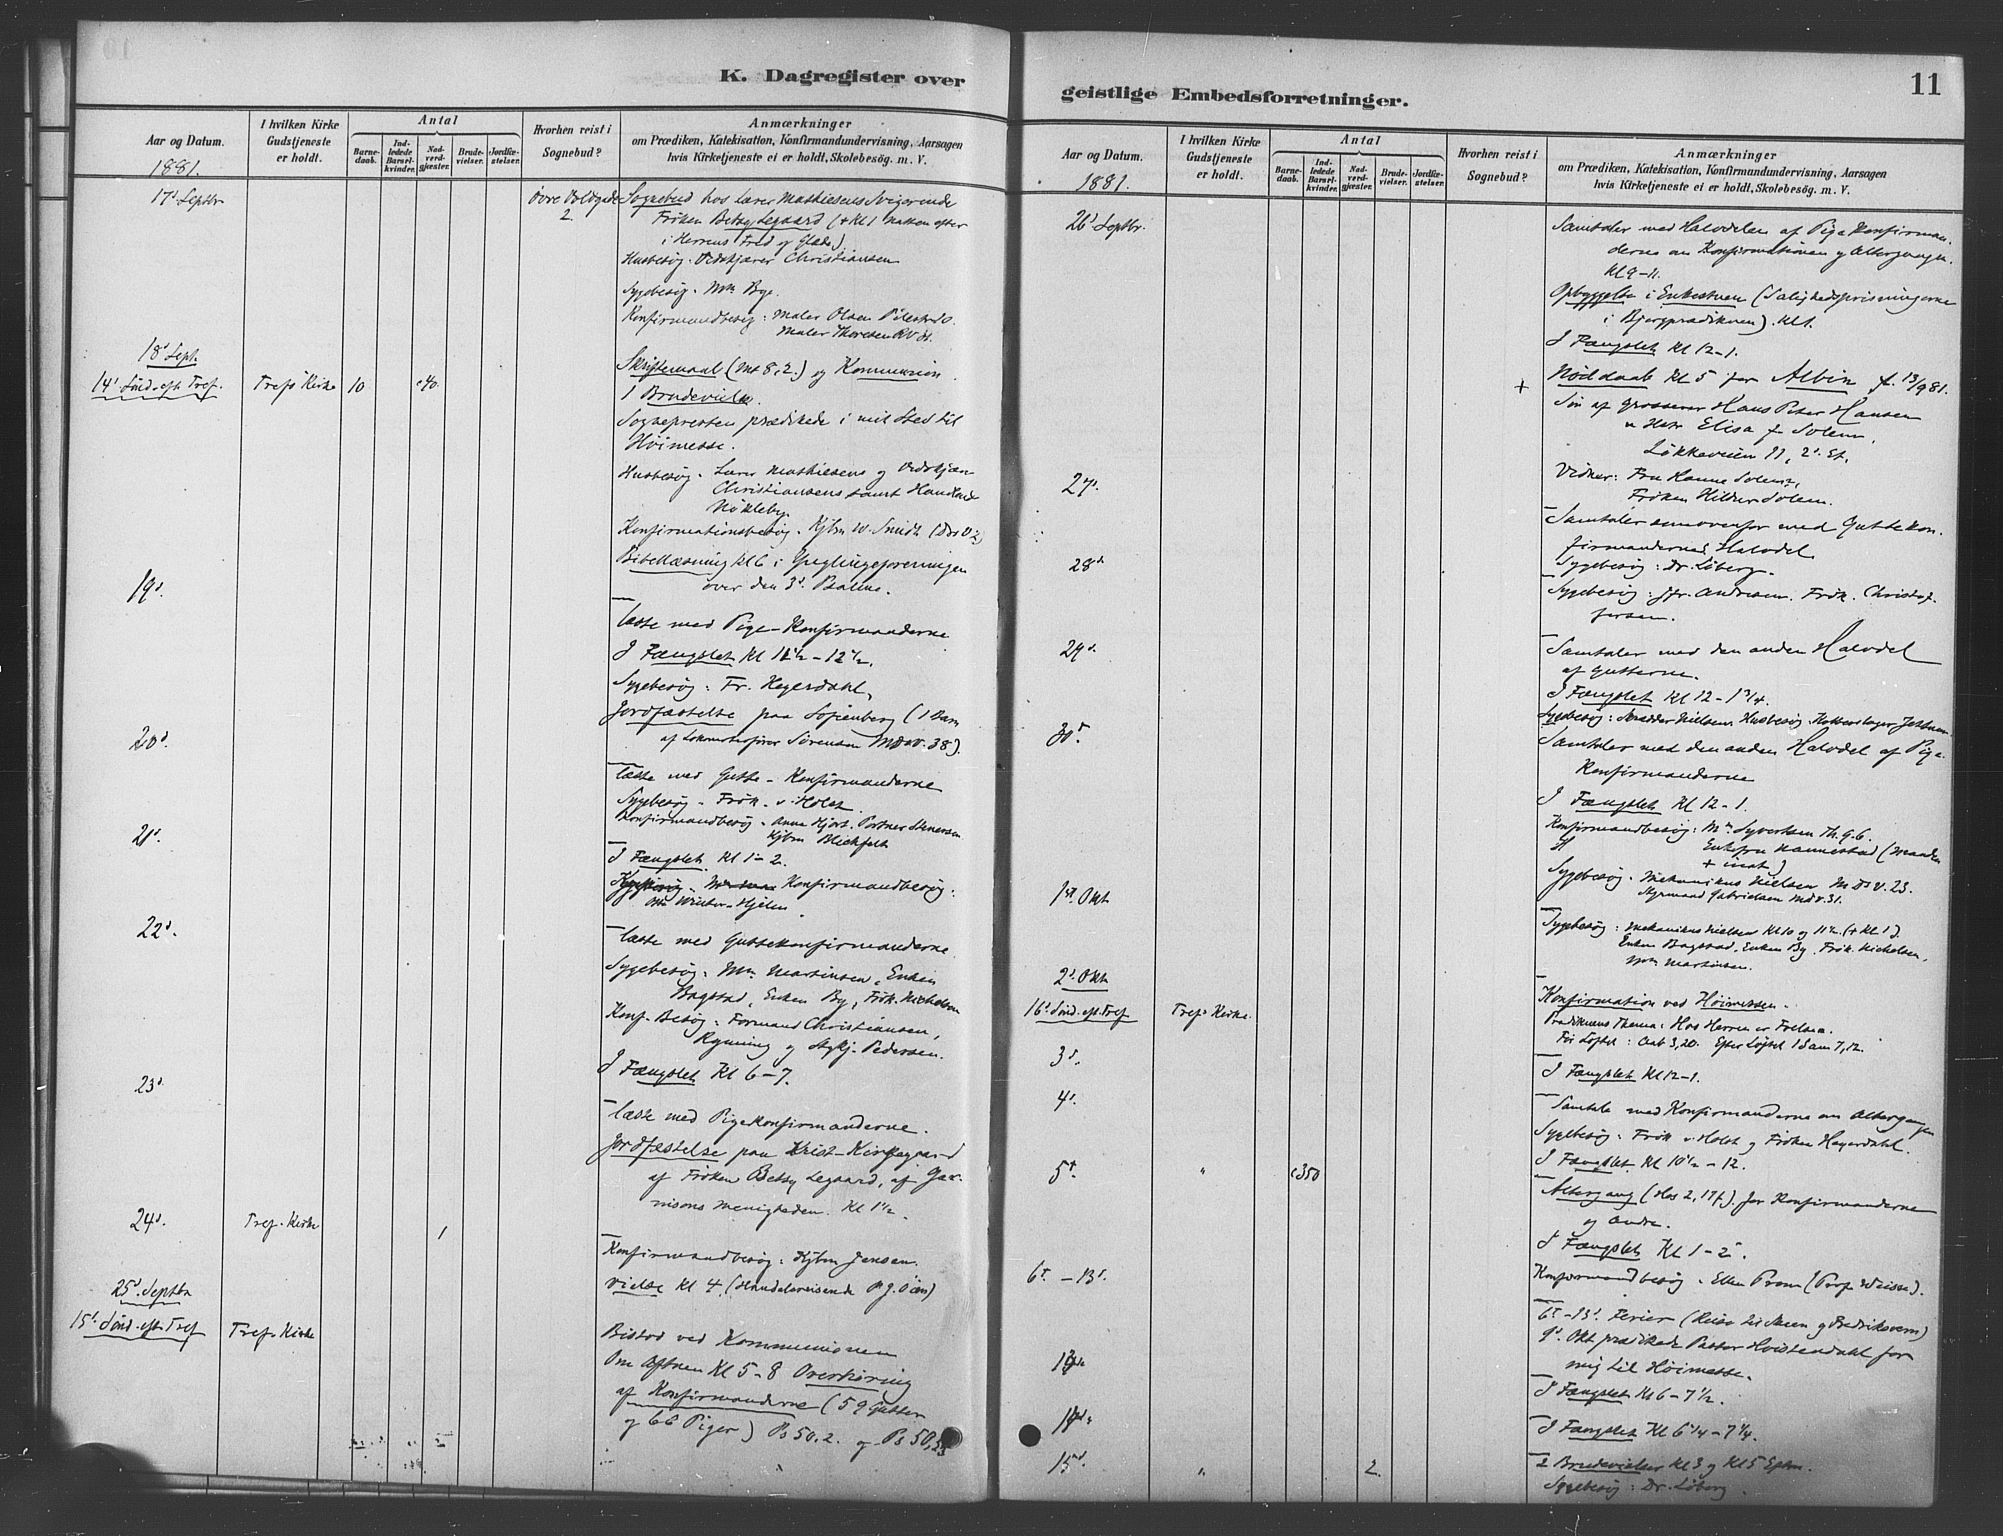 K. Dagregister over
Aar og Datum.
1881.
I hvilken Kirke Gudstjeneste er holdt.
Antal
Barne-daab.
Ind-ledede Barsel-kvinder.
Nad-verd-gjester.
Brude-vielser.
Jordfæ-stelser.
Hvorhen reist i Sognebud?
Anmærkninger
om Prædiken, Katekisation, Konfirmandundervisning, Aarsagen
hvis Kirketjeneste ei er holdt, Skolebesøg. m. V.
17d Septbr
Øvre Voldgade
2.
Sognebud hos Lærer Mathiesens Svigerinde
Frøken Betsy Legaard (+ Kl 1 Natten efter
i Herrens Fred og Glæde)
Husbesøg. Christiansen
Sygebesøg. Mm Bye.
Konfirmandbesøg: Maler Olsen
Maler Thoresen
18d Sept.
14d Sønd. eft. Tref.
Tref. Kirke
10
c40.
Skriftemaal (Mt 8,2.) og Kommunion
1 Brudevielse.
Sognepresten prædikede i mit Sted til
Høimesse.
Husbesøg. Lærer Mathiesens og
Christiansens samt
Nøkleby.
Konfirmationsbesøg.
Bibellæsning Kl 6 i Ynglingeforeningen
over den 3d. Psalme.
19d.
Læste med Pige-Konfirmanderne
I Fængslet Kl 11½ – 12½.
Sygebesøg: Fr. Heyerdahl,
Jordfæstelse paa Sofienberg (1 Barn
af Lokomotivfører Sørensen 38).
20d.
Læste med Gutte-Konfirmanderne
Sygebesøg. Frøk. v. Holst.
Konfirmandbesøg. Anna Hjort. Portner
Kjbm Blichfelt
21d.
I Fængslet. Kl 1–2.
Konfirmandbesøg:
Winter-Hjelm.
22d.
Læste med Guttekonfirmanderne.
Sygebesøg. Mm Martinsen, Enken
Bagstad, Enken By, Frøk. Michelsen
Konf. Besøg: Formand Christiansen,
Rynning og Pedersen.
I Fængslet Kl 6–7.
23d.
Læste med Pigekonfirmanderne.
Jordfæstelse paa Krist Kirkegaard
af Frøken Betsy Legaard, af Gar-
nisons Menigheden. Kl 1½.
24d.
Tref. Kirke
1
Konfirmandbesøg: Kjbm Jensen.
Vielse Kl 4. (Handelsreisende
25d. Septbr
15d Sønd. eft. Tref
Tref. Kirke
Bistod ved Kommunionen
Om Aftnen Kl 5–8 Overhøring
af Konfirmanderne (59 Gutter
og 66 Piger) Ps 50.2. og Ps 50,23
geistlige Embedsforretninger.
11
Aar og Datum.
1881.
I hvilken Kirke Gudstjeneste er holdt.
Antal
Barne-daab.
Ind-ledede Barsel-kvinder.
Nad-verd-gjester.
Brude-vielser.
Jordfæ-stelser.
Hvorhen reist i Sognebud?
Anmærkninger
om Prædiken, Katekisation, Konfirmandundervisning, Aarsagen
hvis Kirketjeneste ei er holdt, Skolebesøg. m. V.
26d Septbr.
Samtaler med Halvdelen af Pige Konfirman-
derne om Konfirmationen og Altergangen.
Kl 9–11.
Opbyggelse i Enkestuen (Salighedsprisningerne
i Bjergprædikenen). Kl 1.
I Fængslet Kl 12–1.
+
Nøddaab Kl 5 for Albin f. 13/9 81.
Søn af Grosserer Hans Peter Hansen
og Hstr Elisa f. Solem,
Løkkeveien 11, 2d. Et.
Vidner: Fru Hanne Solem,
Frøken Hilder Solem.
27d.
Samtaler som ovenfor med Guttekon-
firmandernes Halvdel.
Sygebesøg: Dr. Løberg.
28de
Sygebesøg: Jfr. Andresen. Frøk. Christof-
fersen.
29d.
Samtaler med den anden Halvdel
af Gutterne.
I Fængslet Kl 12–1¾.
Sygebesøg: Skrædder Nielsen. Husbesøg.
30t.
Samtaler med den anden Halvdel af Pige
Konfirmanderne
I Fængslet Kl 12–1.
Konfirmandbesøg: Mm Syvertsen Th. g. 6.
Enkefru Hannestad (Manden
+ inat)
Sygebesøg. Mekanikus Nielsen 23.
Styrmand Gabrielsen 31.
1st. Okt
Sygebesøg: Mekanikus Nielsen Kl 10 og 11½. (+ Kl 1).
Enken Bagstad, Enken By, Frøk. Michelsen,
Mm Martinsen.
2d. Okt
16d. Sønd. eft. Tref
Tref. Kirke.
Konfirmation ved Høimessen.
Prædikenens Thema: Hos Herren er Frelsen.
Før Løftet: Aab 3,20. Efter Løftet 1 Sam 7,12.
3d.
I Fængslet Kl 12–1.
4d.
Samtale med Konfirmanderne om Altergangen
Sygebesøg: Frøk v. Holst og Frøken Heyerdahl.
I Fængslet. Kl 10½–12.
5t.
"
c350
Altergang (Hos 2, 19 f.) for Konfirmanderne
og Andre.
I Fængslet Kl 1–2.
Konfirmandbesøg. Ellen Prom (Prof. Weisse).
6t. – 13d.
6t – 13d. Ferier (Reise til Skien og Fredriksværn)
9d. Okt prædikede Pastor Hvistendahl for
mig til Høimesse.
13de
I Fængslet Kl 6 – 7½.
14de
I Fængslet Kl 6¼ – 7¼.
15de
"
2.
2 Brudevielser Kl 3 og Kl 5 Eftm.
Sygebesøg: Dr. Løberg.